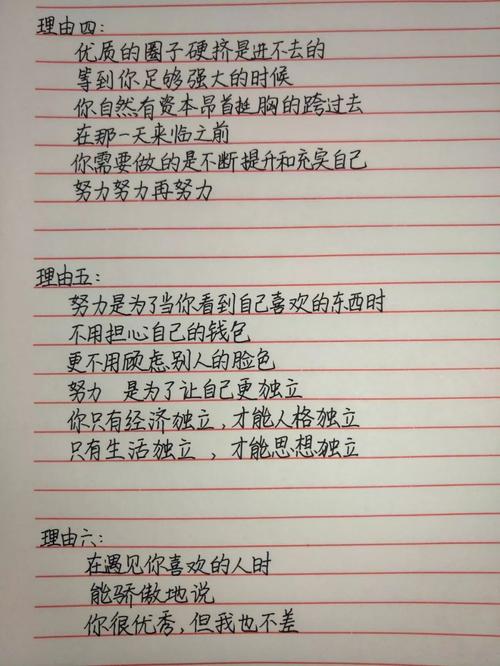 理由四:
优质的圈子硬挤是进不去的
等到你足够强大的时候
你自然有资本昂首挺胸的跨过去
在那一天来临之前
你需要做的是不断提升和充实自己
努力努力再努力
理由五:
努力是为了当你看到自己喜欢的东西时
不用担心自己的钱包
更不用顾虑别人的脸色
努力 是为了让自己更独立
你只有经济独立,才能人格独立
只有生活独立,才能思想独立
理由六:
在遇见你喜欢的人时
能骄傲地说
你很优秀,但我也不差